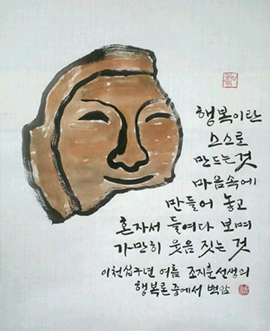 행복이란
스스로
만드는 것
마음속에
만들어 놓고
혼자서 들여다 보며
가만히 웃음 짓는 것
이천십구년 여름 조지훈 선생의
행복론 중에서 벽암